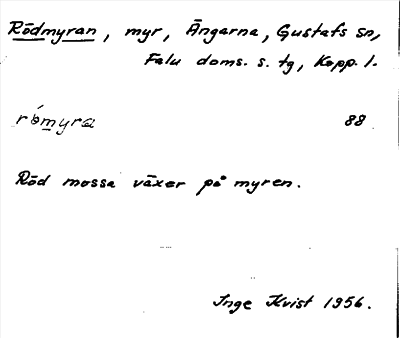 Rödmyran, myr, Ängarna, Gustafs sn,
Falu doms. s. tg, Kopp. l.
rómyra 88
Röd mossa växer på myren.
Inge Kvist 1956.